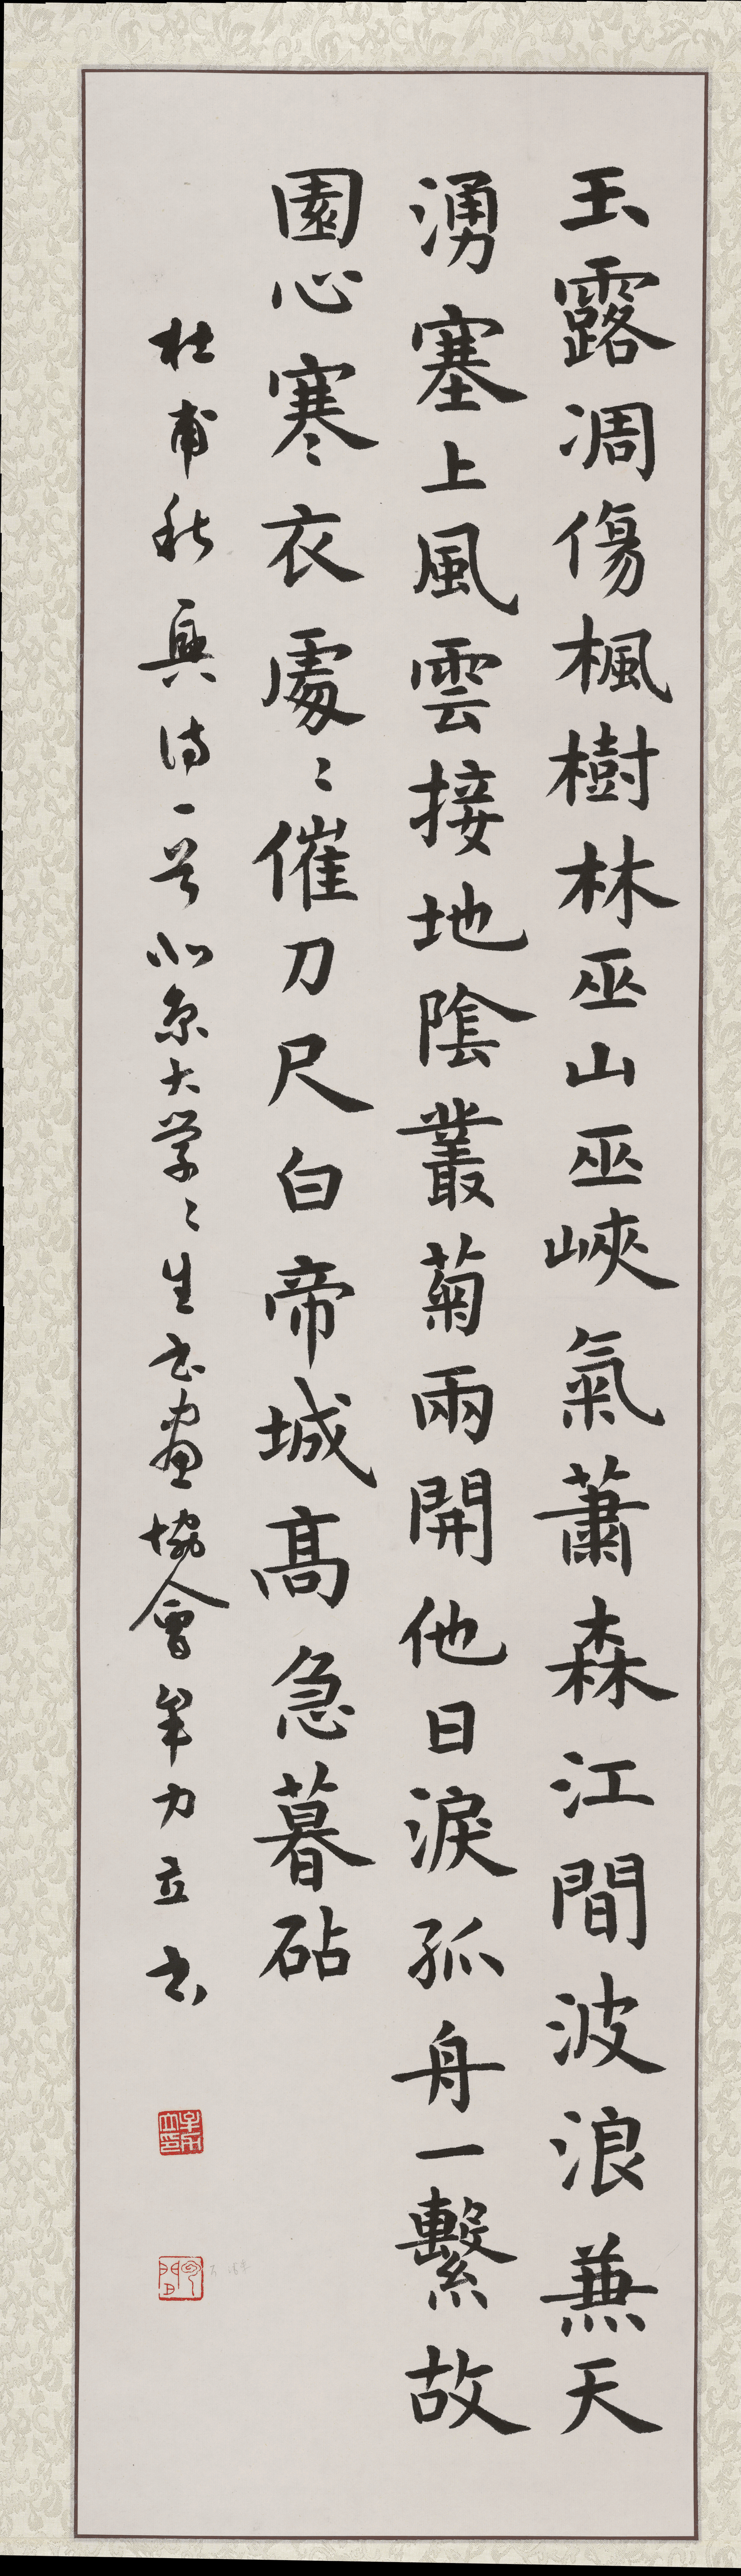 玉露凋傷楓樹林巫山巫峽氣蕭森江間波浪兼天
湧塞上風雲接地陰叢菊兩開他日淚孤舟一繫故
園心寒衣處〻催刀尺白帝城高急暮砧
杜甫秋興詩一首北京大学〻生书画協會牟力立书